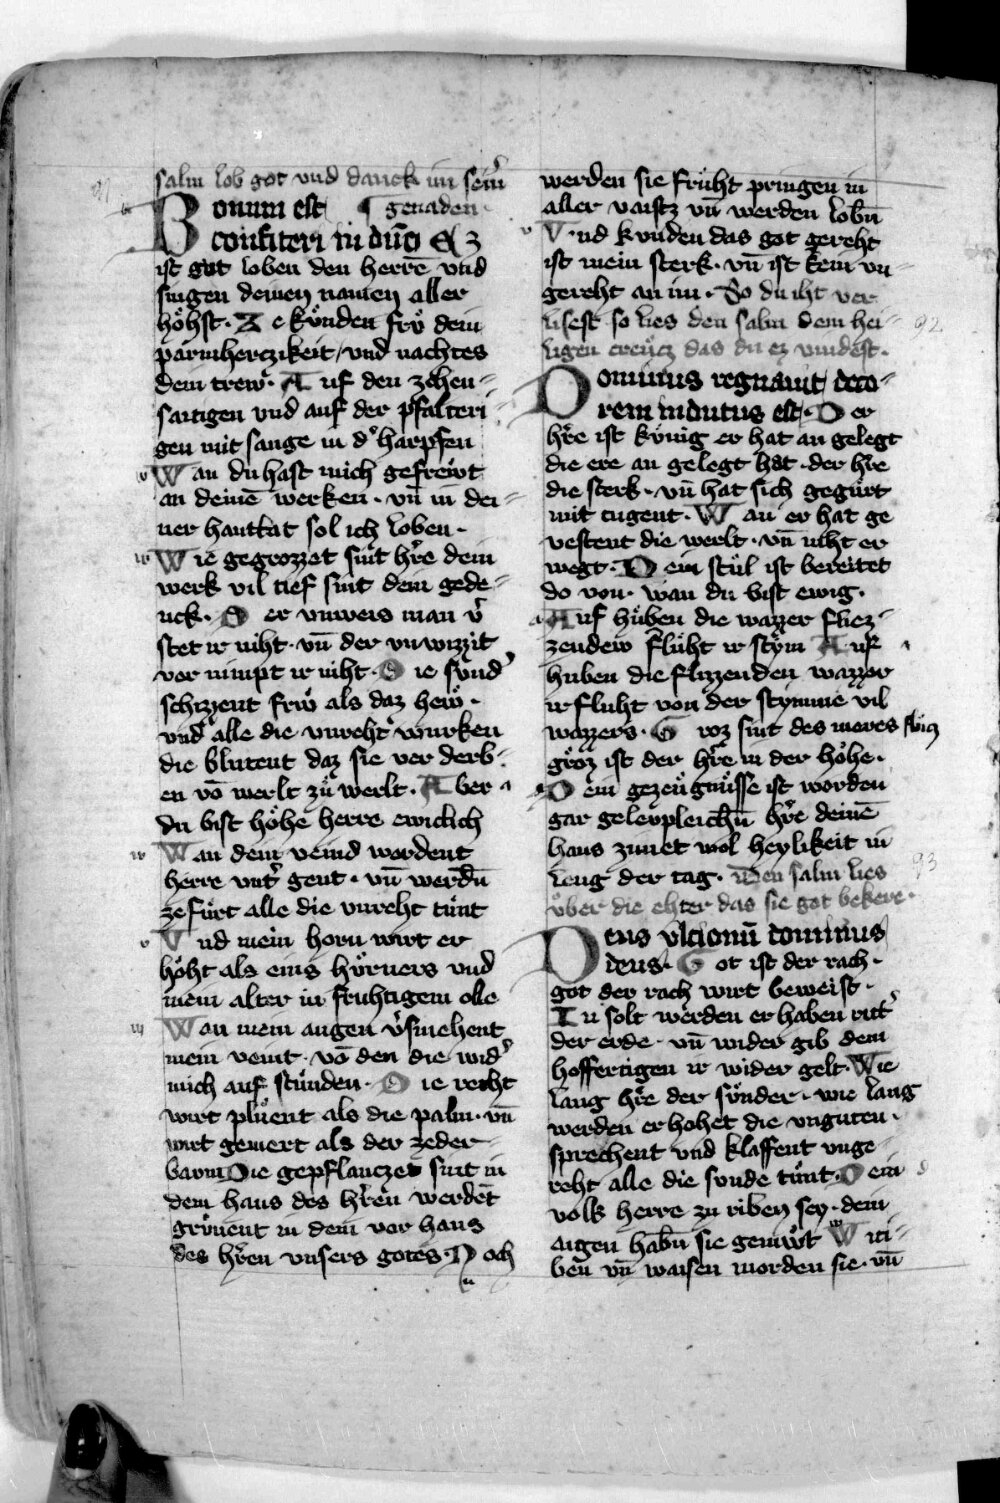 salm lob got vnd danck im sein̄
Bonum est ¶ genaden
confiteri in dn̄o Ez
ist gut loben den herrē vnd
singen deinen namen aller
hoͤhst. Ze kuͤnden fruͤ dein
parmherczikeit / vnd nachtes
dein trew. Auf den zehen=
saitigen vnd auf der psalteri
gen mit sange in d' harpfen
Wan du hast mich gefrewt
an deinē werken. vn̄ in dei=
ner hanttat sol ich loben.
Wie gegrozzet sint hr̄e dein
werk vil tief sint dein gede=
nck. Der vnweis man v'
stet ir niht. vn̄ der vnwizzit
ver nimpt ir niht. Die suͤnd'
schizzent frw als daz hew.
vnd alle die vnreht wurken
die blutent daz sie ver derb=
en vō werlt zuͤ werlt. Aber
du bist hoͤhe herre ewiclich
Wan dein veind werdent
herre vnt' gent. vn̄ werdn̄
ze fuͤrt alle die vnreht tuͤnt
Vnd mein horn wirt er
hoͤht als eins huͤrners vnd
mein alter in fruhtigem olle
Wan mein augen v'smehent
mein veint. vō den die wid'
mich auf stuͤnden. Die recht
wirt pluͤent als die palm. vn̄
wirt gemert als der zeder=
baum Die gepflanczed sint in
dem haus des hr̄en werdēt
gruͤnent in dem vor haus
des hr̄en vnsers gotes. Noch
werden sie fruͤht pringen in
aller vaistz vn̄ werden lobn̄
Vnd kunden das got gereht
ist mein sterk. vn̄ ist kein vn=
gereht an im. So du iht ver
lisest so lies den salm dem hei= 92
ligen creuͤcz das du ez vindest.
Dominus regnauit deco=
rem indutus est. Der
hr̄e ist kuͤnig er hat an gelegt
die ere an gelegt hat. der hr̄e
die sterk. vn̄ hat sich geguͤrt
mit tugent. Wan er hat ge
vestent die werlt. vn̄ niht er
wegt. Dein stuͤl ist bereitet
do von. wan du bist ewig.
Auf huͤben die wazzer fliez=
zendew fluͤht ir stym Auf
huben die flizzenden wazzer
ir fluht von der stymme vil
wazzers. Groz sint des meres
groͤz ist der hr̄e in der hoͤhe.
Dein gezeuͤgnuͤsse ist worden
gar gelewpleichn̄ hr̄e deinē
haus zimet wol heylikeit in
leng der tag. Den salm lies 93
uͤber die ehter das sie got bekere.
Deus vltionū dominus
deus. Got ist der rach.
got der rach wirt beweist.
Du solt werden erhaben riht'
der erde. vn̄ wider gib dem
hoffertigen ir wider gelt. Wie
lang hr̄e der suͤnder. wie lang
werden erhohet die vnguten.
sprechent vnd klaffent vnge=
reht alle die sunde tuͤnt. Dein
volk herre zu riben sey. dein
aigen habn̄ sie gemuͤt Witi=
ben̄ vn̄ waisen morden sie. vn̄